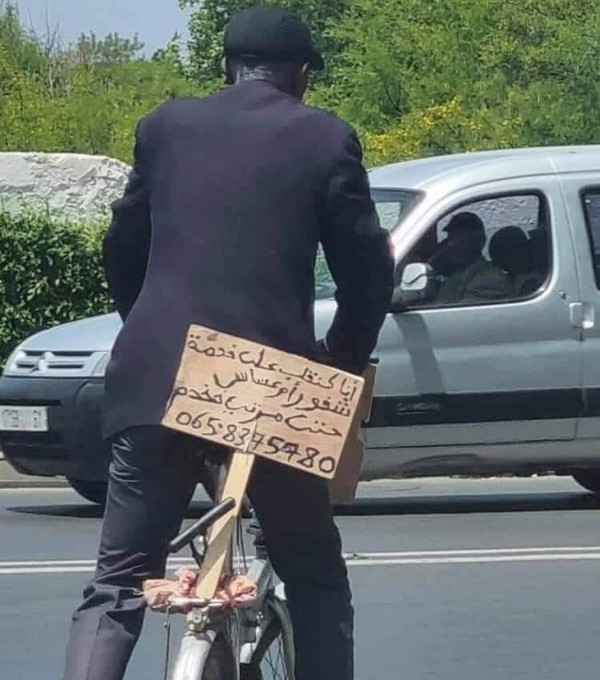 أنا كنقلب على خدمة
شفور أم عساس
حتى مرتب مخدم
065.8375480